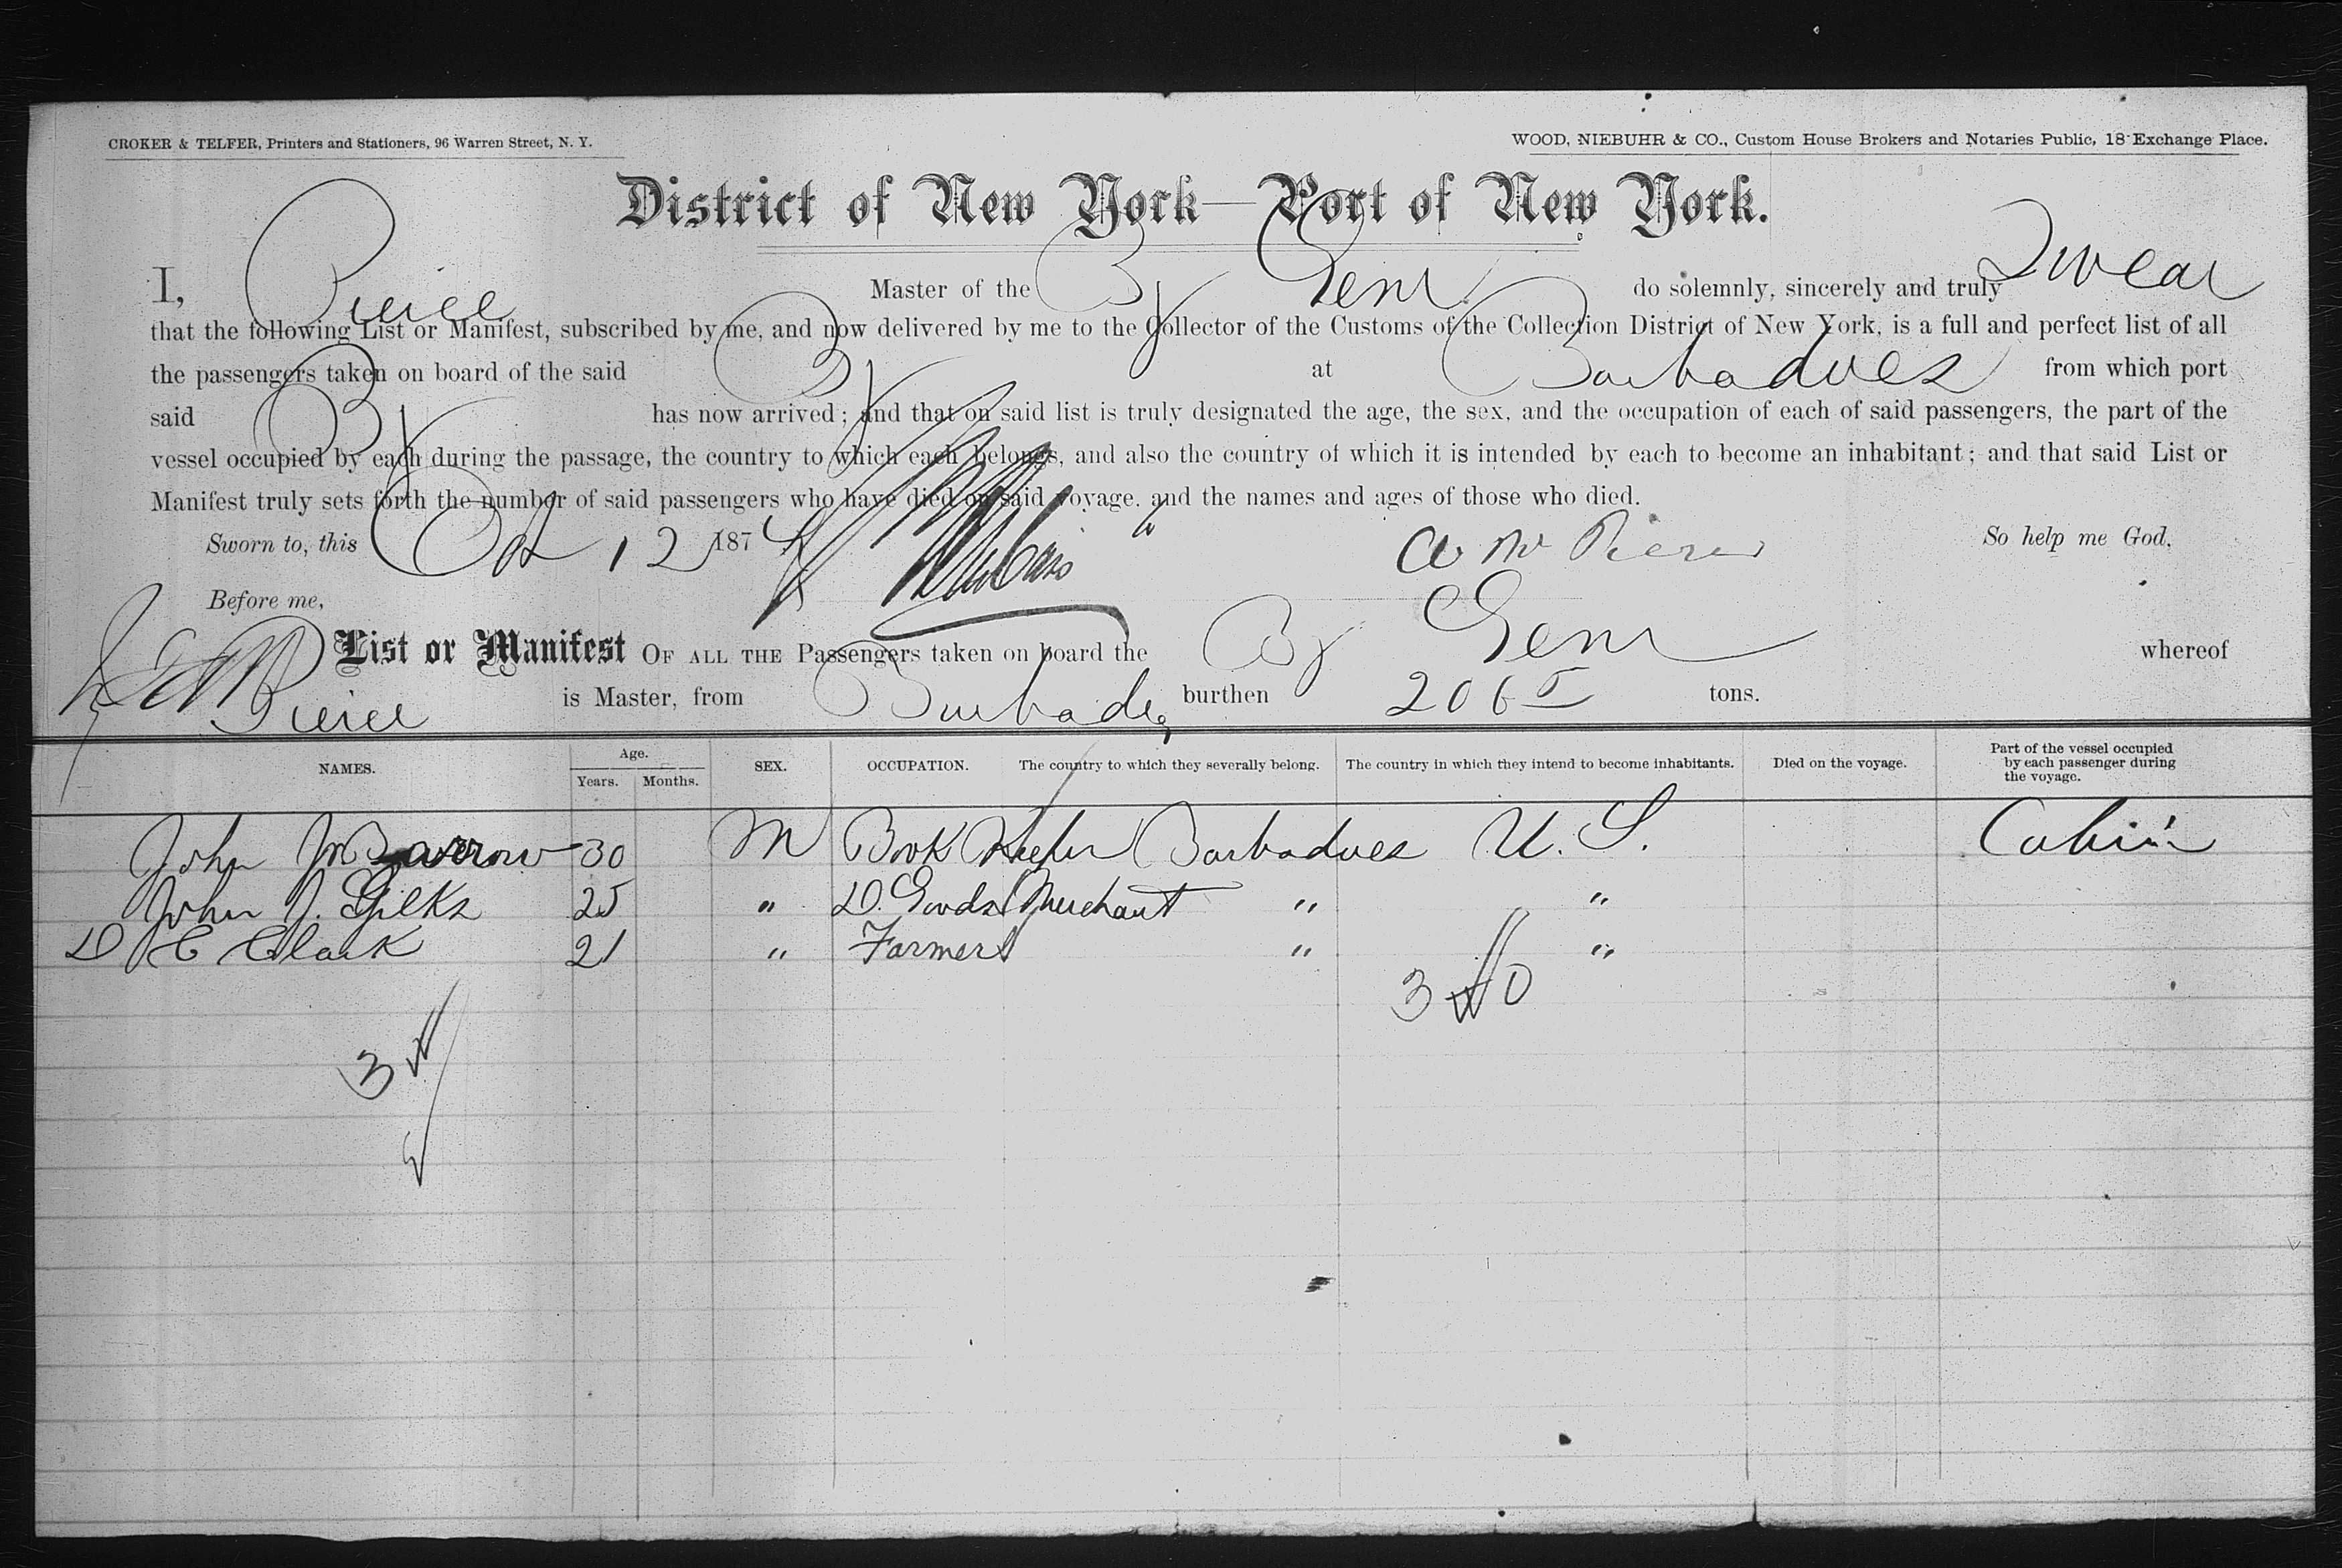 CROKER & TELFER, Printers and Stationers, 96 Warren Street, N. Y.
WOOD, NIEBUHR & CO., Custom House Brokers and Notaries Public, 18 Exchange Place.
District of New York—Port of New York.
I, Pierce Master of the Bg Gem do solemnly, sincerely and truly Swear
that the following List or Manifest, subscribed by me, and now delivered by me to the Collector of the Customs of the Collection District of New York, is a full and perfect list of all
the passengers taken on board of the said Bg at Barbadoes from which port
said Bg has now arrived; and that on said list is truly designated the age, the sex, and the occupation of each of said passengers, the part of the
vessel occupied by each during the passage, the country to which each belongs, and also the country of which it is intended by each to become an inhabitant; and that said List or
Manifest truly sets forth the number of said passengers who have died on said voyage, and the names and ages of those who died.
Sworn to, this Oct 12 1874 So help me God,
Before me,
List or Manifest OF ALL THE Passengers taken on board the Bg Gem whereof
Pierce is Master, from Barbados burthen 206 tons.
NAMES. Age. Years. Months. SEX. OCCUPATION. The country to which they severally belong. The country in which they intend to become inhabitants. Died on the voyage. Part of the vessel occupied by each passenger during the voyage.
John M Barrow 30 M Book Keeper Barbadoes U. S. Cabin
John J. Gilks 25 " D. Goods Merchant " "
D C Clark 21 " Farmer " "
3 0
3